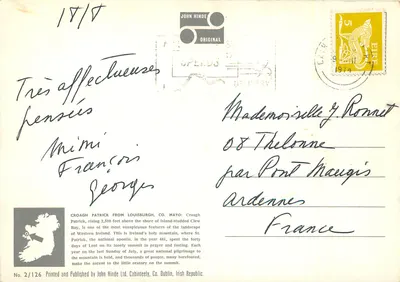 18/8
JOHN HINDE
ORIGINAL
5
EIRE
Très affectueuses
pensées
Mimi
François
Georges
Mademoiselle J Ronnet
08 Thelonne
par Pont Maugis
Ardennes
France
CROAGH PATRICK FROM LOUISBURGH, CO. MAYO: Croagh
Patrick, rising 2,510 feet above the share of island-studded Clew
Bay, is one of the most conspicuous features of the landscape
of Western Ireland. This is Ireland's holy mountain, where St.
Patrick, the national apostle, in the year 441, spent the forty
days of Lent on its lonely summit in prayer and fasting. Each
year on the last Sunday of July, a great national pilgrimage to
the mountain is held, and thousands of people, many barefooted,
make the ascent to the little oratory on the summit.
No. 2/126 Printed and Published by John Hinde Ltd. Cabinteely, Co. Dublin, Irish Republic.